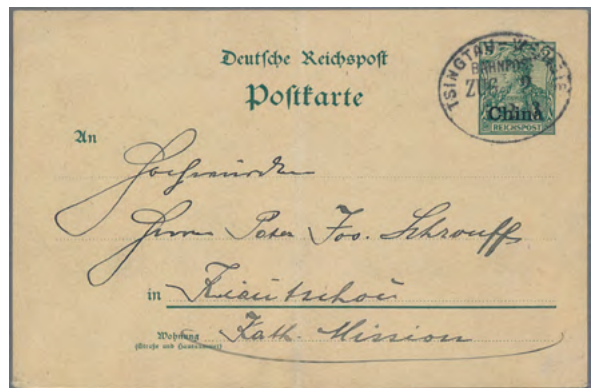 Deutsche Reichspost
Postkarte
TSINGTAU
BAHNPOST
ZUG 2
China
REICHSPOST
An
Hochwürden
Herrn Pater Jos. Schrouff
in Kiautschou
Wohnung Kath. Mission
(Straße und Hausnummer)